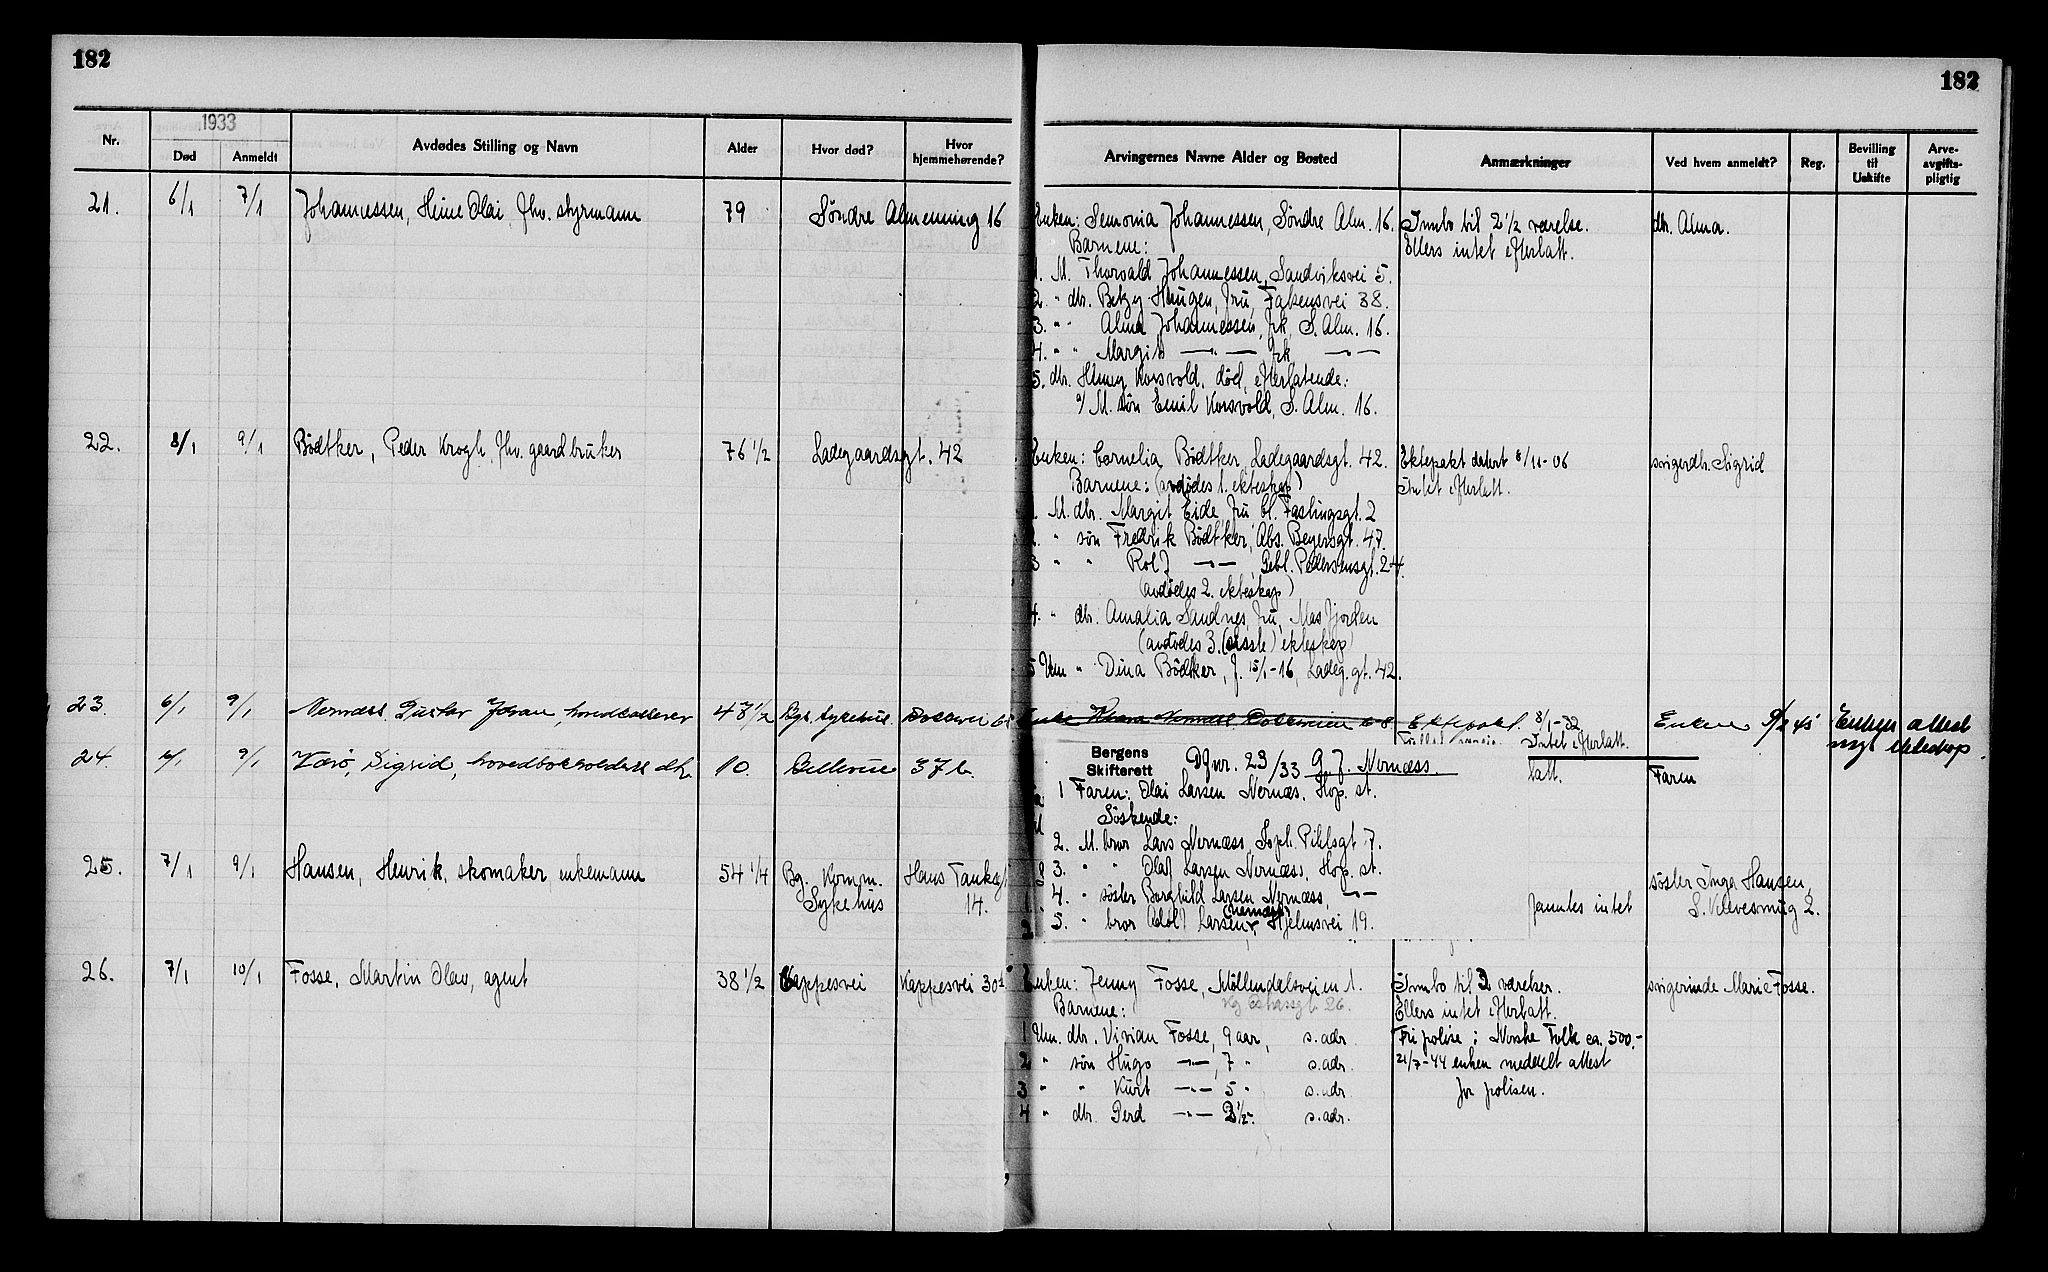 182
182
1933
Nr.
Død
Anmeldt
Avdødes Stilling og Navn
Alder
Hvor død?
Hvor hjemmehørende?
Arvingernes Navne Alder og Bosted
Anmærkninger
Ved hvem anmeldt?
Reg.
Bevilling til Uskifte
Arve-avgifts-pligtig
21. 6/1 7/1 Johannessen, Heine Olai, fhv. styrmann 79 Søndre Almenning 16
Enken: Semonia Johannessen, Søndre Alm. 16.
Barnene:
1. M. Thorvald Johannessen, Sandviksvei 5.
2. " dtr. Betzy Haugen, fru, Falsensvei 38.
3. " " Alma Johannessen, frk, S. Alm. 16.
4. " " Margit —"— frk —"—
5. dtr. Henny Korsvold, død, efterlatende:
a/ M. søn Emil Korsvold, S. Alm. 16.
Innbo til 2 1/2 værelse.
Ellers intet efterlatt.
dtr. Alma.
22. 8/1 9/1 Bødtker, Peder Krogh, fhv. gaardbruker 76 1/2 Ladegaardsgt. 42
Enken: Cornelia Bødtker, Ladegaardsgt. 42.
Barnene: (avdødes 1. ekteskap)
1. M. dtr. Margit Eide, fru, Cl. Fastingsgt. 2
2. " søn Fredrik Bødtker, Abs. Beyersgt. 47.
3 " " Rolf —"— Gebl. Pedersensgt. 24.
(avdødes 2. ekteskap)
4. " dtr. Amalia Sandnes, fru, Masfjorden
(avdødes 3. (sisste) ekteskap)
5 Um " Dina Bødtker, f. 15/1-16, Ladeg.gt. 42.
Ektepakt datert 8/11-06
Intet efterlatt.
svigerdtr. Sigrid
23. 6/1 9/1 Nernæss, Gustav Johan, hovedkasserer 47 1/2 Bgs. sykehus.
Ektepakt. 8/1-32
Intet efterlatt.
Enken 9/2 45
Enken attest
nyt ekteskap.
24 6/1 9/1 Værø, Sigrid, hovedbokholders dtr. 10. Bellevue 37 b.
latt.
Faren
Bergens Skifterett
Df nr. 23/33 G. J. Nernæss.
1 Faren: Olai Larsen Nernæs, Hop. st.
Søskende:
2. M. bror Lars Nernæss, Soph. Pihlsgt 7.
3. " " Olaf Larsen Nernæss, Hop. st.
4. " søster Borghild Larsen Nernæss, —"—
5. " bror Adolf Larsen Nernæss Hjelmsvei 19.
25. 7/1 9/1 Hansen, Henrik, skomaker, enkemann 54 1/4 Bg. Komm. Sykehus
Hans Tanksgt 14.
fanntes intet
søster Inga Hansen,
26. 7/1 10/1 Fosse, Martin Olav, agent 38 1/2 Kappesvei Kappesvei 30
Enken: Jenny Fosse, Møllendalsveien 1.
Barnene:
1 Um. dtr. Vivian Fosse, 9 aar, s. adr.
2 " søn Hugo —"—, 7 " s. adr.
3 " " Kurt —"— 5 " s. adr.
4 " dtr. Gerd —"— 2 1/2 " s. adr.
Innbo til 2 værelser.
Ellers intet efterlatt.
Fri polise i Norske Folk ca. 500.-
21/7-44 enken meddelt attest
for polisen.
svigerinde Marie Fosse.